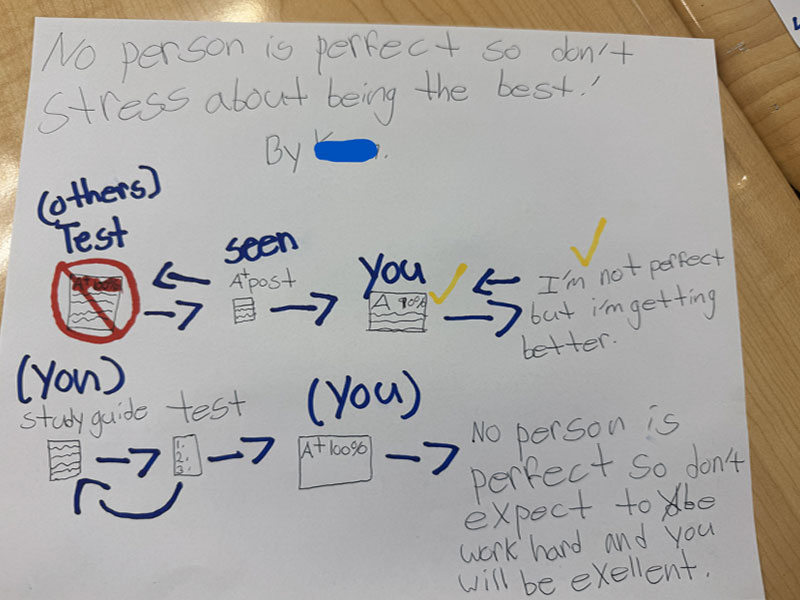 No person is perfect so don't
stress about being the best!
By
(others)
Test
A+ 100%
seen
A+ post
you
A 90%
I'm not perfect
but i'm getting
better.
(You)
study guide
test
1.
2.
3.
(You)
A+ 100%
No person is
perfect so don't
expect to be
work hard and you
will be exellent.